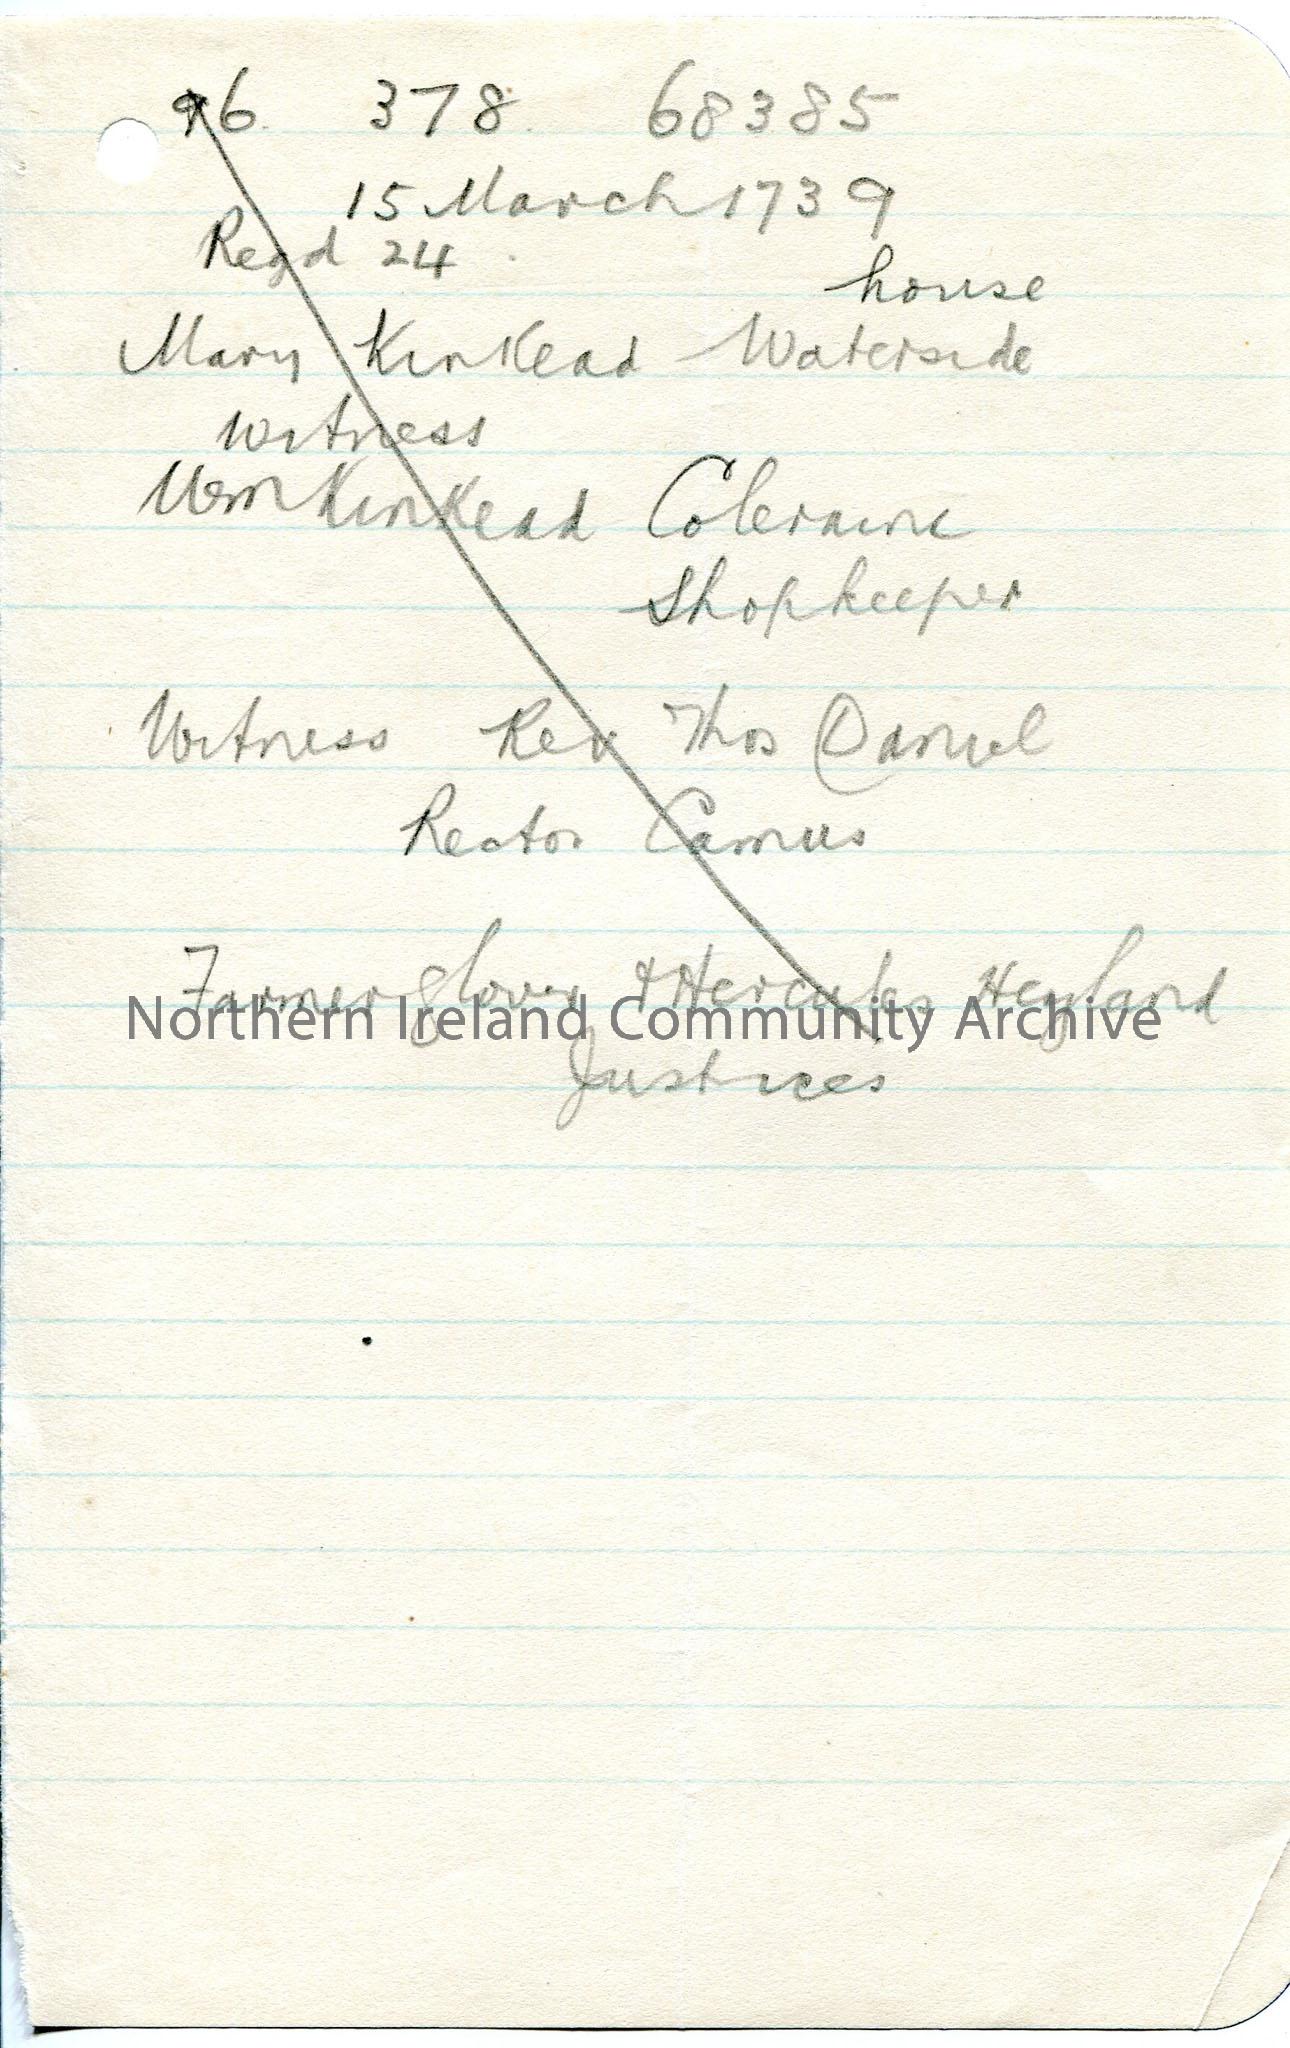 96 378 68385
15 March 1739
Regd 24
house
Mary Kinkead Waterside
Witness
Wm Kinkead Coleraine
Shopkeeper
Witness Rev Thos Daniel
Rector Camus
Farmer Glover & Hercules Heyland
Northern Ireland Community Archive
Justices